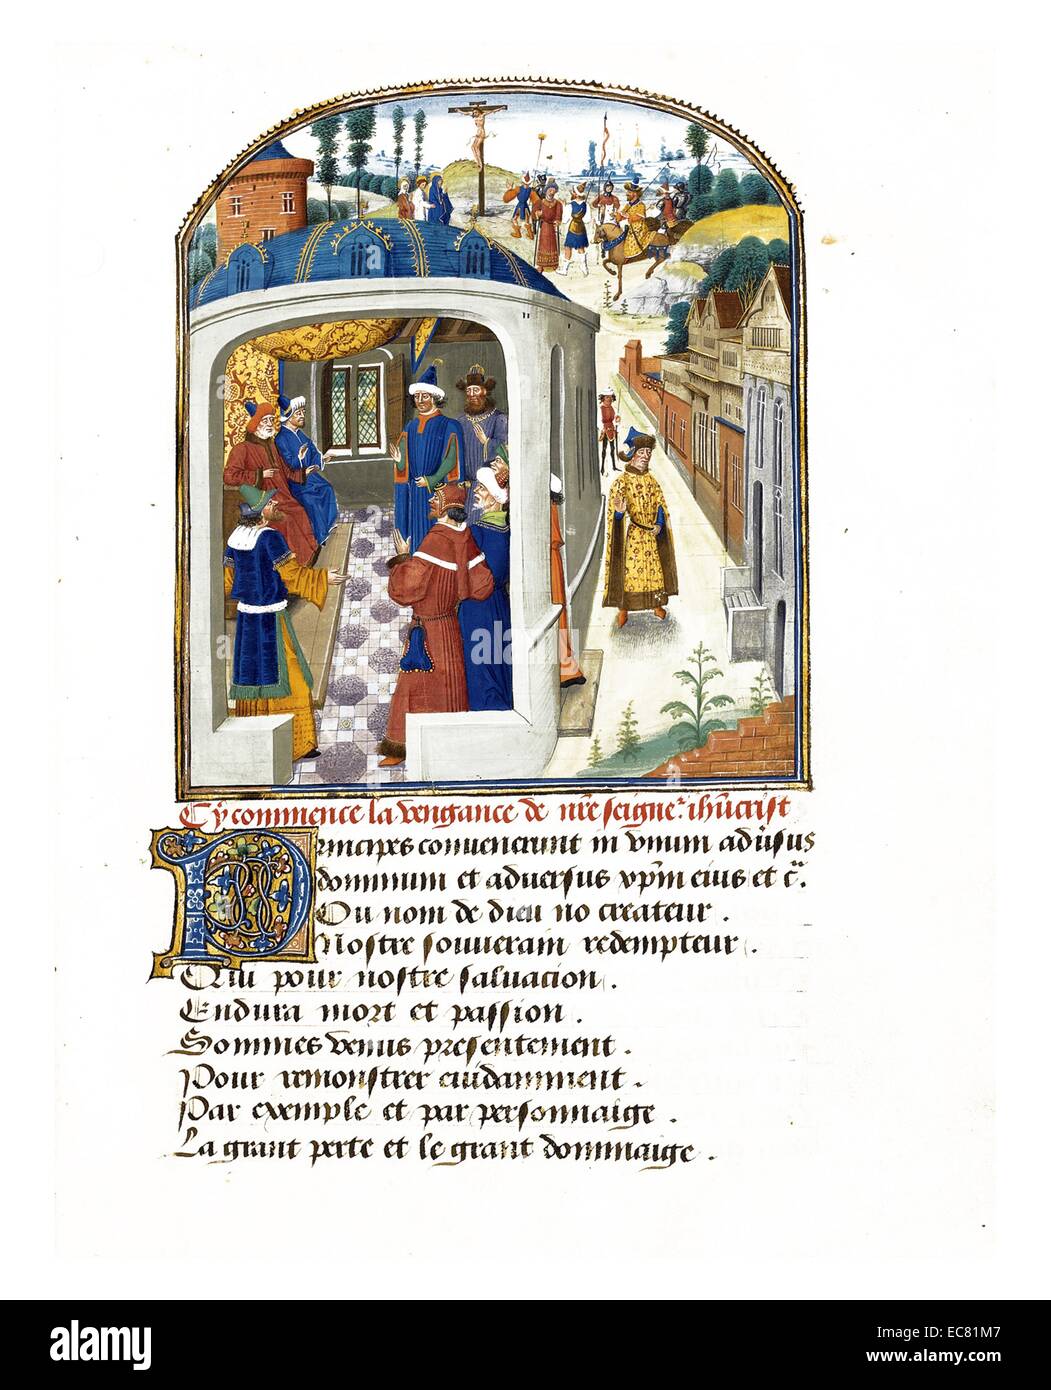 Cy commence la vengance de nr̃e seignẽ ihũcrist
Principes convenerunt in vnum adũsus
dominum et adversus xp̃m eius et c̃.
Ou nom de dieu no createur .
Nostre souverain redempteur .
Qui pour nostre salvacion .
Endura mort et passion .
Sommes venus presentement .
Pour remonstrer evidamment .
Par exemple et par personnaige .
La grant perte et le grant dommaige .
alamy
alamy
Image ID: EC81M7
www.alamy.com